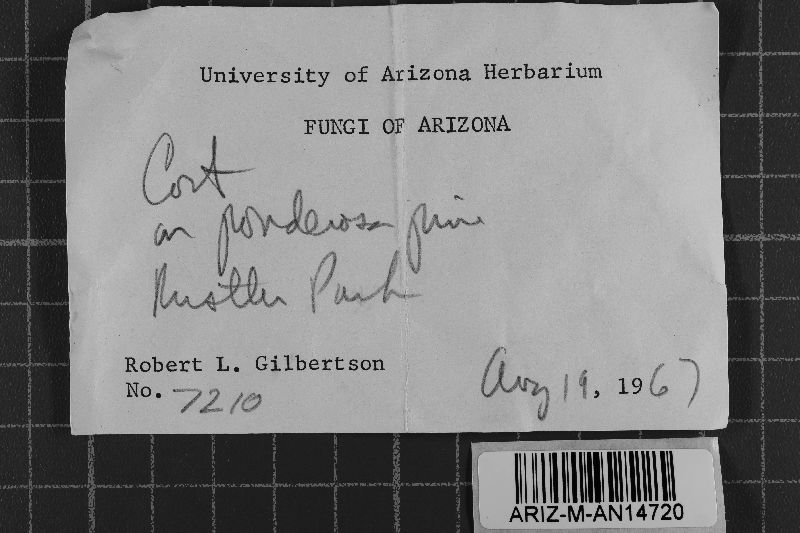 University of Arizona Herbarium
FUNGI OF ARIZONA
Cort
on ponderosa pine
Rustler Park
Robert L. Gilbertson
No. 7210
Aug 19, 1967
ARIZ-M-AN14720